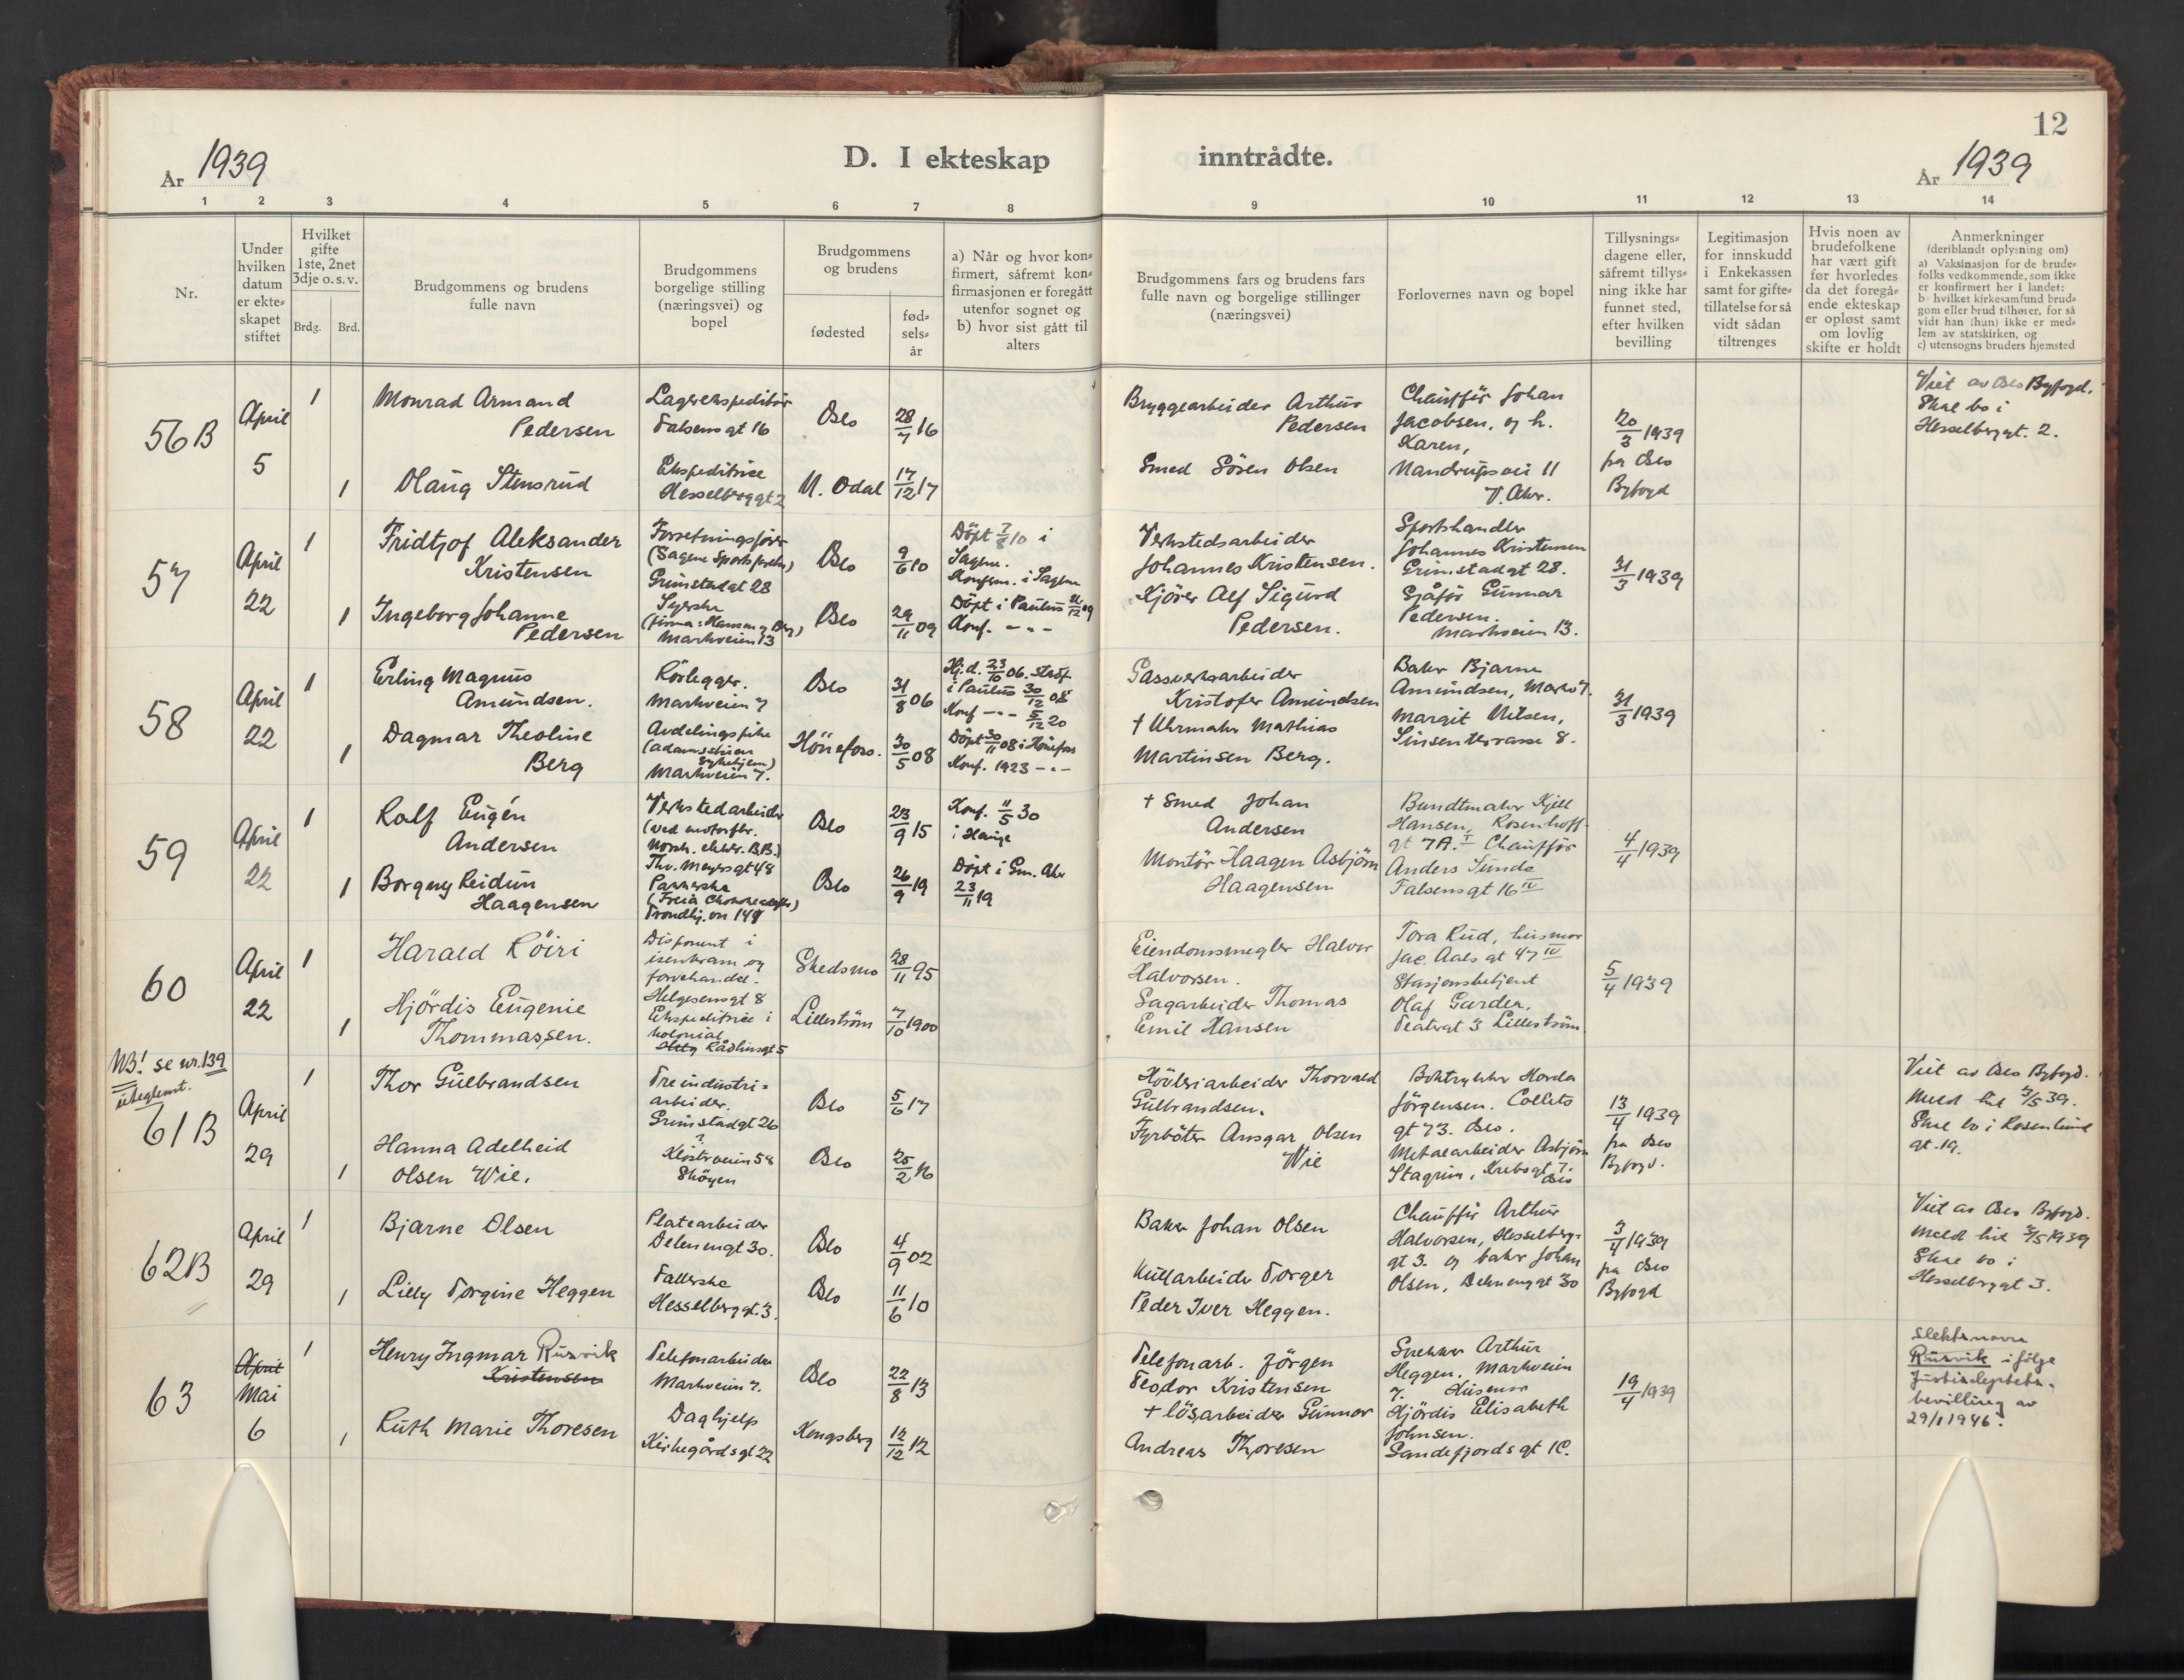 12
År 1939
D. I ekteskap inntrådte.
År 1939
1 2 3 4 5 6 7 8 9 10 11 12 13 14
Nr.
Under
hvilken
datum
er ekte-
skapet
stiftet
Hvilket
gifte
1ste, 2net
3dje o.s.v.
Brdg. Brd.
Brudgommens og brudens
fulle navn
Brudgommens
borgelige stilling
(næringsvei) og
bopel
Brudgommens
og brudens
fødested
fød-
sels-
år
a) Når og hvor kon-
firmert, såfremt kon-
firmasjonen er foregått
utenfor sognet og
b) hvor sist gått til
alters
Brudgommens fars og brudens fars
fulle navn og borgelige stillinger
(næringsvei)
Forlovernes navn og bopel
Tillysnings-
dagene eller,
såfremt tillys-
ning ikke har
funnet sted,
efter hvilken
bevilling
Legitimasjon
for innskudd
i Enkekassen
samt for gifte-
tillatelse for så
vidt sådan
tiltrenges
Hvis noen av
brudefolkene
har vært gift
før hvorledes
da det foregå-
ende ekteskap
er opløst samt
om lovlig
skifte er holdt
Anmerkninger
(deriblandt oplysning om)
a) Vaksinasjon for de brude-
folks vedkommende, som ikke
er konfirmert her i landet:
b) hvilket kirkesamfund brud-
gom eller brud tilhører, for så
vidt han (hun) ikke er med-
lem av statskirken, og
c) utensogns bruders hjemsted
56B
April
5
1
1
Monrad Armand
Pedersen
Olaug Stensrud
Lagerekspeditør
Falsensgt 16
Ekspeditrise
Hesselberggt 2
Oslo
N. Odal
28/7 16
17/12 17
Bryggearbeider Arthur
Pedersen
Smed Sören Olsen
Chauffør Johan
Jacobsen, og h.
Karen,
Nandrupsvei 11
V. Aker.
20/3 1939
fra Oslo
Byfogd
Viet av Oslo Byfogd.
Skal bo i
Hesselberggt. 2.
57
April
22
1
1
Fridtjof Aleksander
Kristensen
Ingeborg Johanne
Pedersen
Forretningsfører
(Sagene Sportsforr.)
Grimstadgt 28
Syerske
(firma: Hansen og Berg)
Markveien 13
Oslo
Oslo
9/6 10
29/11 09
Döpt 7/8 10 i
Sagene.
Konfirm. i Sagene
Döpt i Paulus 26/12 09
Konf. - " -
Verkstedsarbeider
Johannes Kristensen.
Kjörer Alf Sigurd
Pedersen.
Sportshandler
Johannes Kristensen
Grimstadgt 28.
Sjåför Gunnar
Pedersen.
Markveien 13.
31/3 1939
58
April
22
1
1
Erling Magnus
Amundsen.
Dagmar Theoline
Berg
Rörlegger.
Markveien 7
Avdelingspike
(Adamstuen
Sykehjem)
Markveien 7.
Oslo
Hönefoss.
31/8 06
30/5 08
Hj.d. 23/10 06. Stadf.
i Paulus 30/12 08
Konf - " - 5/12 20
Döpt 30/11 08 i Hönefoss
Konf. 1923 - " -
Gassverksarbeider
Kristofer Amundsen
+ Uhrmaker Mathias
Martinsen Berg.
Baker Bjarne
Amundsen, Markv 7.
Margit Nilsen,
Sinsenterrasse 8.
31/3 1939
59
April
22
1
1
Ralf Eugén
Andersen
Borgny Reidun
Haagensen
Verkstedarbeider
(ved motorfbr.
Norsk. elektr. B.B.)
Thv. Meyersgt 48
Pakkerske
(Freia Chokoladefbr)
Trondhj.vn 149
Oslo
Oslo
23/9 15
26/9 19
Konf. 11/5 30
i Hauge
Döpt i Gml. Aker
23/11 19
+ Smed Johan
Andersen
Montör Haagen Asbjörn
Haagensen
Bundtmaker Kjell
Hansen, Rosenhoff-
gt 7A. I Chauffør
Anders Sunde
Falsensgt 16 IV
4/4 1939
60
April
22
1
1
Harald Röiri
Hjördis Eugenie
Thommassen.
Disponent i
isenkram og
farvehandel.
Helgesensgt 8
Ekspeditrise i
kolonial
Rådhusgt 5
Skedsmo
Lilleström
28/11 95
7/10 1900
Eiendomsmegler Halvor
Halvorsen.
Sagarbeider Thomas
Emil Hansen
Tora Rud, husmor
Jac. Aals gt 47 IV
Stasjonsbetjent
Olaf Garder,
Teatergt 3 Lilleström
5/4 1939
NB! se nr. 139
uteglemt.
61B
April
29
1
1
Thor Gulbrandsen
Hanna Adelheid
Olsen Wie.
Treindustri-
arbeider.
Grimstadgt 26
?
Klosterveien 58
Sköyen
Oslo
Oslo
5/6 17
25/2 16
Hövleriarbeider Thorvald
Gulbrandsen.
Fyrböter Ansgar Olsen
Wie
Boktrykker Horda
Jörgensen. Colletts
gt 73. Oslo.
Metalarbeider Asbjörn
Stagrim, Krebsgt 7.
Oslo
13/4 1939
fra Oslo
Byfogd.
Viet av Oslo Byfogd.
Meld hit 3/5 39.
Skal bo i Rosenlund
gt. 19.
62B
April
29
1
1
Bjarne Olsen
Lilly Torgine Heggen
Platearbeider
Delenenggt 30.
Fallerske
Hesselberggt. 3.
Oslo
Oslo
4/9 02
11/6 10
Baker Johan Olsen
Kullarbeider Torger
Peder Iver Heggen.
Chauffør Arthur
Halvorsen, Hesselberg-
gt 3. og baker Johan
Olsen, Delenenggt 30
3/4 1939
fra Oslo
Byfogd
Viet av Oslo Byfogd.
Meld hit 3/5 1939
Skal bo i
Hesselberggt 3.
63
April
Mai
6
1
1
Henry Ingmar Rusvik
Kristensen
Ruth Marie Thoresen
Telefonarbeider
Markveien 7.
Daghjelp
Kirkegårdsgt 22
Oslo
Kongsberg
22/8 13
12/12 12
Telefonarb. Jörgen
Teodor Kristensen
+ lösarbeider Gunnar
Andreas Thoresen
Snekker Arthur
Heggen, Markveien
7. Husmor
Hjördis Elisabeth
Johnsen.
Sandefjordsgt 1C.
19/4 1939
Slektsnavn
Rusvik i fölge
Justisdeptets.
bevilling av
29/1 1946.